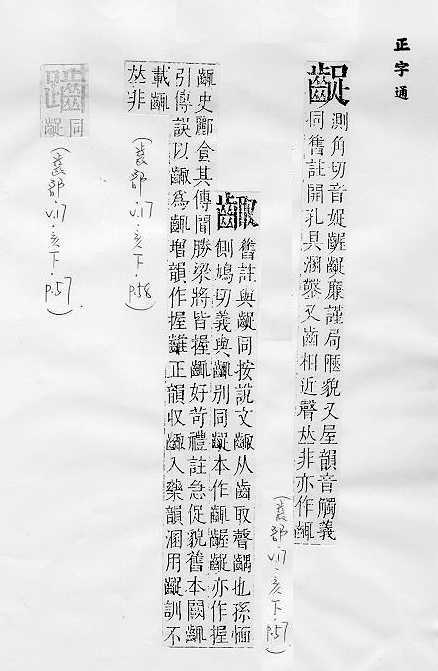 正字通
齪測角切音娖齷齪廉謹局陿貌又屋韻音觸義
同舊註開孔具溷鑿又齒相近聲𠀤非亦作齱
(齒部.v.17.亥下.p.57)
齱舊註與齵同按說文齱从齒取聲齵也孫愐
側鳩切義與齵別同齪本作齱齷齪亦作握
齱史酈食其傳聞勝梁將皆握齱好苛禮註急促貌舊本闕齱
引傳誤以齱為齵增韻作握齱正韻收齱入藥韻溷用齪訓不
載齱
𠀤非
(齒部.v.17.亥下.p.58)
同齪
(齒部.v.17.亥下.p.57)